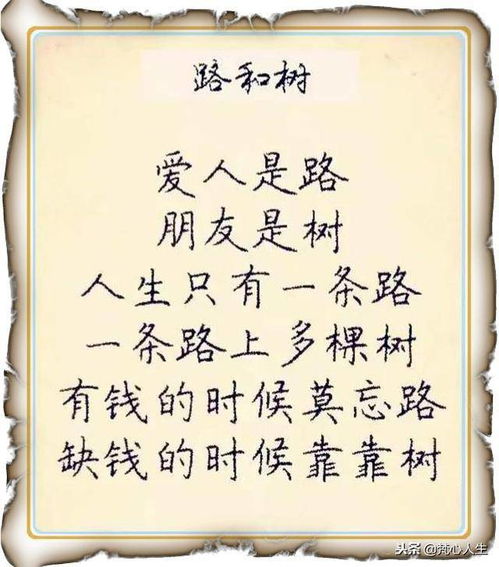 路和树
爱人是路
朋友是树
人生只有一条路
一条路上多棵树
有钱的时候莫忘路
缺钱的时候靠靠树
头条@梵心人生